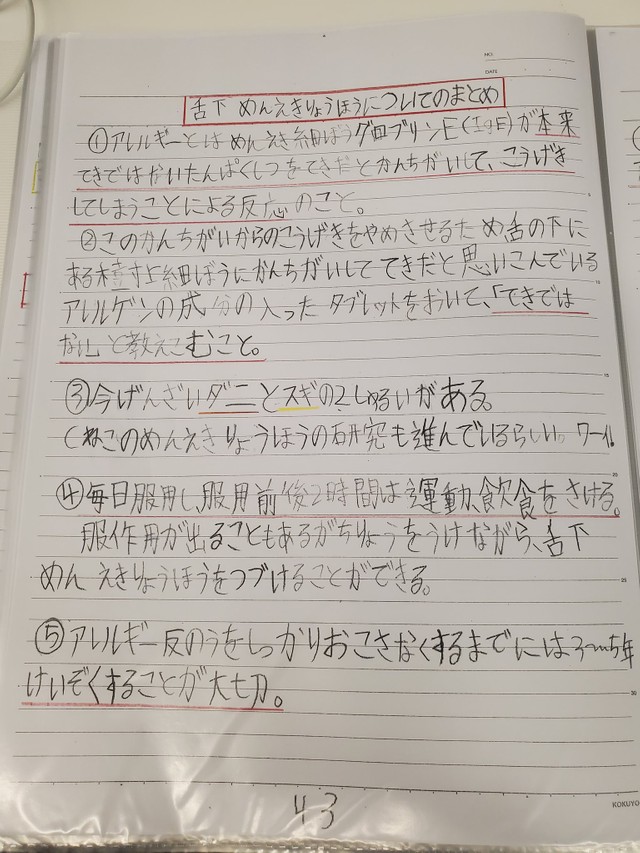 NO.
DATE
舌下 めんえきりょうほうについてのまとめ
①アレルギーとは めんえき細ぼうグロブリンE(IgE)が本来
てきではないたんぱくしつをてきだとかんちがいして、こうげき
してしまうことによる反応のこと。
②このかんちがいからのこうげきをやめさせるため舌の下に
ある樹上細ぼうにかんちがいしててきだと思いこんでいる
アレルゲンの成分の入ったタブレットをおいて、「てきでは
ない」と教えこむこと。
③今げんざいダニとスギの2しゅるいがある。
(ねこのめんえきりょうほうの研究も進んでいるらしい。
④毎日服用し、服用前後2時間は運動、飲食をさける。
服作用が出ることもあるがちりょうをうけながら、舌下
めんえきりょうほうをつづけることができる。
⑤アレルギー反のうをしっかりおこさなくするまでには3〜5年
けいぞくすることが大七刀。
43
KOKUYO